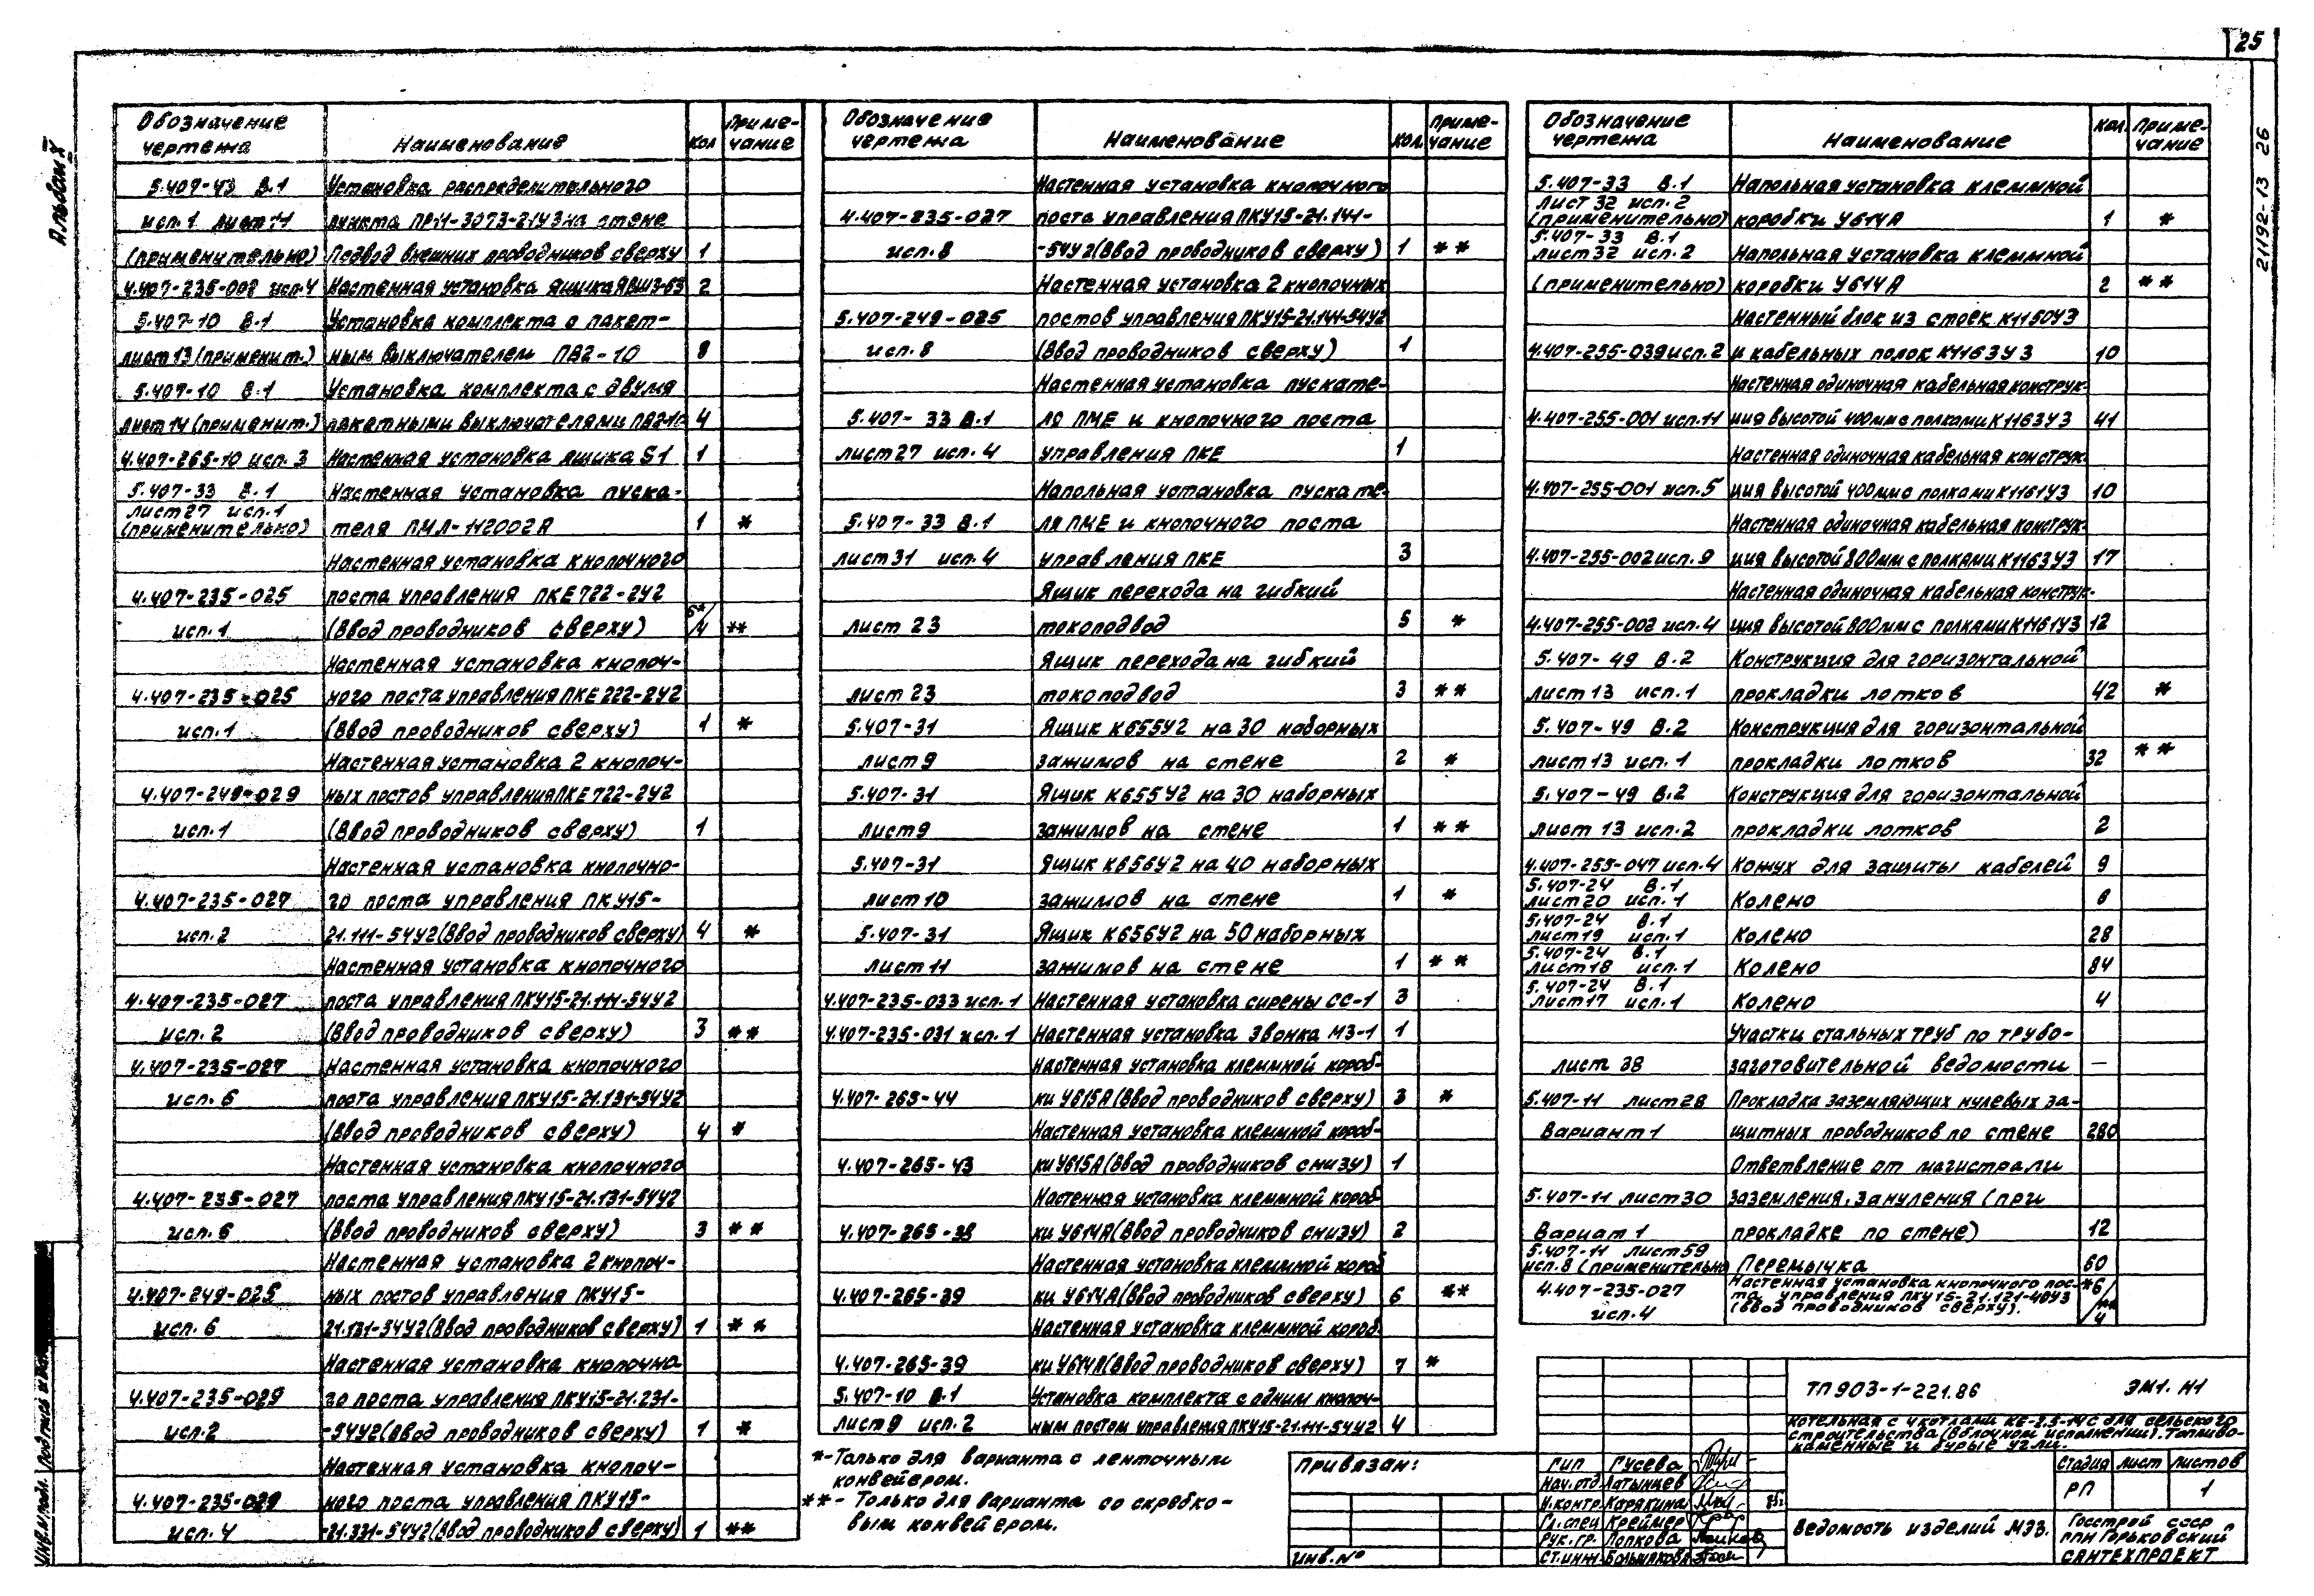 25
Альбом X
21192-13 26
Обозначение чертежа Наименование Кол Примечание
5.407-43 В.1 Установка распределительного
исп.1 лист 11 пункта ПР11-3073-21У3 на стене
(применительно) Подвод внешних проводников сверху 1
4.407-235-002 исп.4 Настенная установка ящика ЯВШ3-63 2
5.407-10 В.1 Установка комплекта с пакет-
лист 13 (применит.) ным выключателем ПВ2-10 8
5.407-10 В.1 Установка комплекта с двумя
лист 14 (применит.) пакетными выключателями ПВ2-10 4
4.407-265-10 исп.3 Настенная установка ящика S1 1
5.407-33 В.1 Настенная установка пуска-
лист 27 исп.1
(применительно) теля ПМЛ-112002А 1 *
Настенная установка кнопочного
4.407-235-025 поста управления ПКЕ722-2У2
исп.1 (Ввод проводников сверху) 6*/4 **
Настенная установка кнопоч-
4.407-235-025 ного поста управления ПКЕ222-2У2
исп.1 (Ввод проводников сверху) 1 *
Настенная установка 2 кнопоч-
4.407-249-029 ных постов управления ПКЕ722-2У2
исп.1 (Ввод проводников сверху) 1
Настенная установка кнопочно-
4.407-235-027 го поста управления ПКУ15-
исп.2 21.111-54У2 (Ввод проводников сверху) 4 *
Настенная установка кнопочного
4.407-235-027 поста управления ПКУ15-21.111-54У2
исп.2 (Ввод проводников сверху) 3 **
4.407-235-027 Настенная установка кнопочного
исп.6 поста управления ПКУ15-21.131-54У2
(Ввод проводников сверху) 4 *
Настенная установка кнопочного
4.407-235-027 поста управления ПКУ15-21.131-54У2
исп.6 (Ввод проводников сверху) 3 **
Настенная установка 2 кнопоч-
4.407-249-025 ных постов управления ПКУ15-
исп.6 21.131-54У2 (Ввод проводников сверху) 1 **
Настенная установка кнопочно
4.407-235-029 го поста управления ПКУ15-21.231-
исп.2 -54У2 (Ввод проводников сверху) 1 *
Настенная установка кнопоч-
4.407-235-029 ного поста управления ПКУ15-
исп.4 -21.331-54У2 (Ввод проводников сверху) 1 **
Обозначение чертежа Наименование Кол. Примечание
Настенная установка кнопочного
4.407-235-027 поста управления ПКУ15-21.141-
исп.8 -54У2 (Ввод проводников сверху) 1 **
Настенная установка 2 кнопочных
5.407-249-025 постов управления ПКУ15-21.141-54У2
исп.8 (Ввод проводников сверху) 1
Настенная установка пускате-
5.407-33 В.1 ля ПМЕ и кнопочного поста
лист 27 исп.4 управления ПКЕ 1
Напольная установка пускате-
5.407-33 В.1 ля ПМЕ и кнопочного поста
лист 31 исп.4 управления ПКЕ 3
Ящик перехода на гибкий
лист 23 токоподвод 5 *
Ящик перехода на гибкий
лист 23 токоподвод 3 **
5.407-31 Ящик К655У2 на 30 наборных
лист 9 зажимов на стене 2 *
5.407-31 Ящик К655У2 на 30 наборных
лист 9 зажимов на стене 1 **
5.407-31 Ящик К656У2 на 40 наборных
лист 10 зажимов на стене 1 *
5.407-31 Ящик К656У2 на 50 наборных
лист 11 зажимов на стене 1 **
4.407-235-033 исп.1 Настенная установка сирены СС-1 3
4.407-235-031 исп.1 Настенная установка звонка МЗ-1 1
Настенная установка клеммной короб-
4.407-265-44 ки У615А (Ввод проводников сверху) 3 *
Настенная установка клеммной короб-
4.407-265-43 ки У615А (Ввод проводников снизу) 1
Настенная установка клеммной короб
4.407-265-38 ки У614А (Ввод проводников снизу) 2
Настенная установка клеммной короб
4.407-265-39 ки У614А (Ввод проводников сверху) 6 **
Настенная установка клеммной короб.
4.407-265-39 ки У614А (Ввод проводников сверху) 7 *
5.407-10 В.1 Установка комплекта с одним кнопоч-
лист 9 исп.2 ным постом управления ПКУ15-21.111-54У2 4
*-Только для варианта с ленточным
конвейером.
**- Только для варианта со скребко-
вым конвейером.
Обозначение чертежа Наименование Кол. Примечание
5.407-33 В.1 Напольная установка клеммной
лист 32 исп.2
(применительно) коробки У614А 1 *
5.407-33 В.1
лист 32 исп.2 Напольная установка клеммной
(применительно) коробки У614А 2 **
Настенный блок из стоек К1150У3
4.407-255-039 исп.2 и кабельных полок К1163У3 10
Настенная одиночная кабельная конструк-
4.407-255-001 исп.11 ция высотой 400мм с полками К1163У3 41
Настенная одиночная кабельная конструк.
4.407-255-001 исп.5 ция высотой 400мм с полками К1161У3 10
Настенная одиночная кабельная конструк-
4.407-255-002 исп.9 ция высотой 800мм с полками К1163У3 17
Настенная одиночная кабельная конструк-
4.407-255-002 исп.4 ция высотой 800мм с полками К1161У3 12
5.407-49 В.2 Конструкция для горизонтальной
лист 13 исп.1 прокладки лотков 42 *
5.407-49 В.2 Конструкция для горизонтальной
лист 13 исп.1 прокладки лотков 32 **
5.407-49 В.2 Конструкция для горизонтальной
лист 13 исп.2 прокладки лотков 2
4.407-255-047 исп.4 Кожух для защиты кабелей 9
5.407-24 В.1
лист 20 исп.1 Колено 6
5.407-24 В.1
лист 19 исп.1 Колено 28
5.407-24 В.1
лист 18 исп.1 Колено 84
5.407-24 В.1
лист 17 исп.1 Колено 4
Участки стальных труб по трубо-
лист 38 заготовительной ведомости —
5.407-11 лист 28 Прокладка заземляющих нулевых за-
Вариант 1 щитных проводников по стене 280
Ответвление от магистрали
5.407-11 лист 30 заземления, зануления (при
Вариат 1 прокладке по стене) 12
5.407-11 лист 59
исп.8 (применительно Перемычка 60
4.407-235-027 Настенная установка кнопочного пос-
та управления ПКУ15-21.121-40У3
исп.4 (Ввод проводников сверху). *6/**4
ТП 903-1-221.86 ЭМ1. Н1
Котельная с 4 котлами КЕ-2,5-14С для сельского
строительства (в блочном исполнении). Топливо-
каменные и бурые угли.
Привязан:
Инв.№
ГИП Гусева
Нач.отд. Латынцев
Н.контр. Карякина
Гл.спец Креймер
Рук.гр. Попкова
Ст.инж. Большакова
Стадия Лист Листов
РП 1
Ведомость изделий МЭЗ.
Госстрой СССР
ГПИ Горьковский
Сантехпроект
Инв.№ подл. Подпись и дата